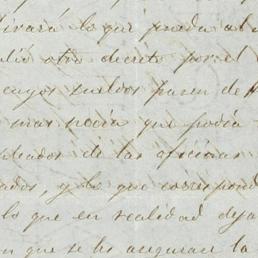 lo que pueda
otro decreto por el
cuyos sueldos pasen de
mas recia que podia
pleados de las oficinas
ados, y lo que correspond
lo que en realidad deja
n que se les aseguran la